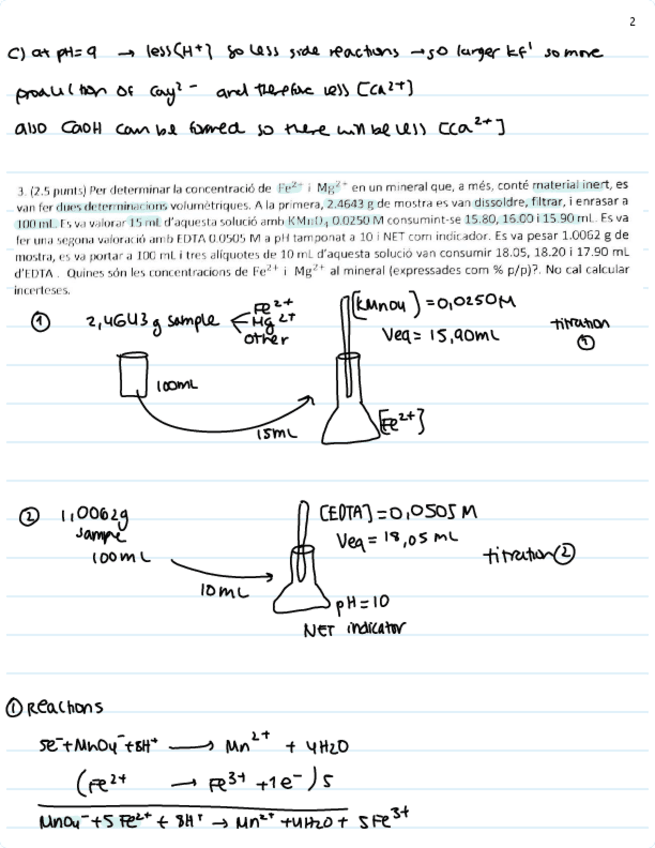 2
c) at pH=9 → less [H+] so less side reactions → so larger kf' so more
production of Cay²- and therefore less [Ca2+]
also CaOH can be formed so there will be less [Ca2+]
3. (2.5 punts) Per determinar la concentració de Fe²⁺ i Mg²⁺ en un mineral que, a més, conté material inert, es
van fer dues determinacions volumètriques. A la primera, 2.4643 g de mostra es van dissoldre, filtrar, i enrasar a
100 mL. Es va valorar 15 mL d'aquesta solució amb KMnO₄ 0.0250 M consumint-se 15.80, 16.00 i 15.90 mL. Es va
fer una segona valoració amb EDTA 0.0505 M a pH tamponat a 10 i NET com indicador. Es va pesar 1.0062 g de
mostra, es va portar a 100 mL i tres alíquotes de 10 mL d'aquesta solució van consumir 18.05, 18.20 i 17.90 mL
d'EDTA . Quines són les concentracions de Fe²⁺ i Mg²⁺ al mineral (expressades com % p/p)?. No cal calcular
incerteses.
① 2,4643 g sample Fe2+
Mg2+
other
[KMnO4] = 0,0250M
Veq = 15,90mL
titration
①
100mL
15mL
[Fe2+]
② 1,0062g
sampe
100mL
10mL
[EDTA] = 0,0505 M
Veq = 18,05 mL
titration ②
pH=10
NET indicator
① Reactions
5e⁻+MnO4⁻+8H⁺ → Mn2+ + 4H2O
(Fe2+ → Fe3+ +1e⁻)5
MnO4⁻+5 Fe2+ + 8H+ → Mn2+ +4H2O + 5Fe3+